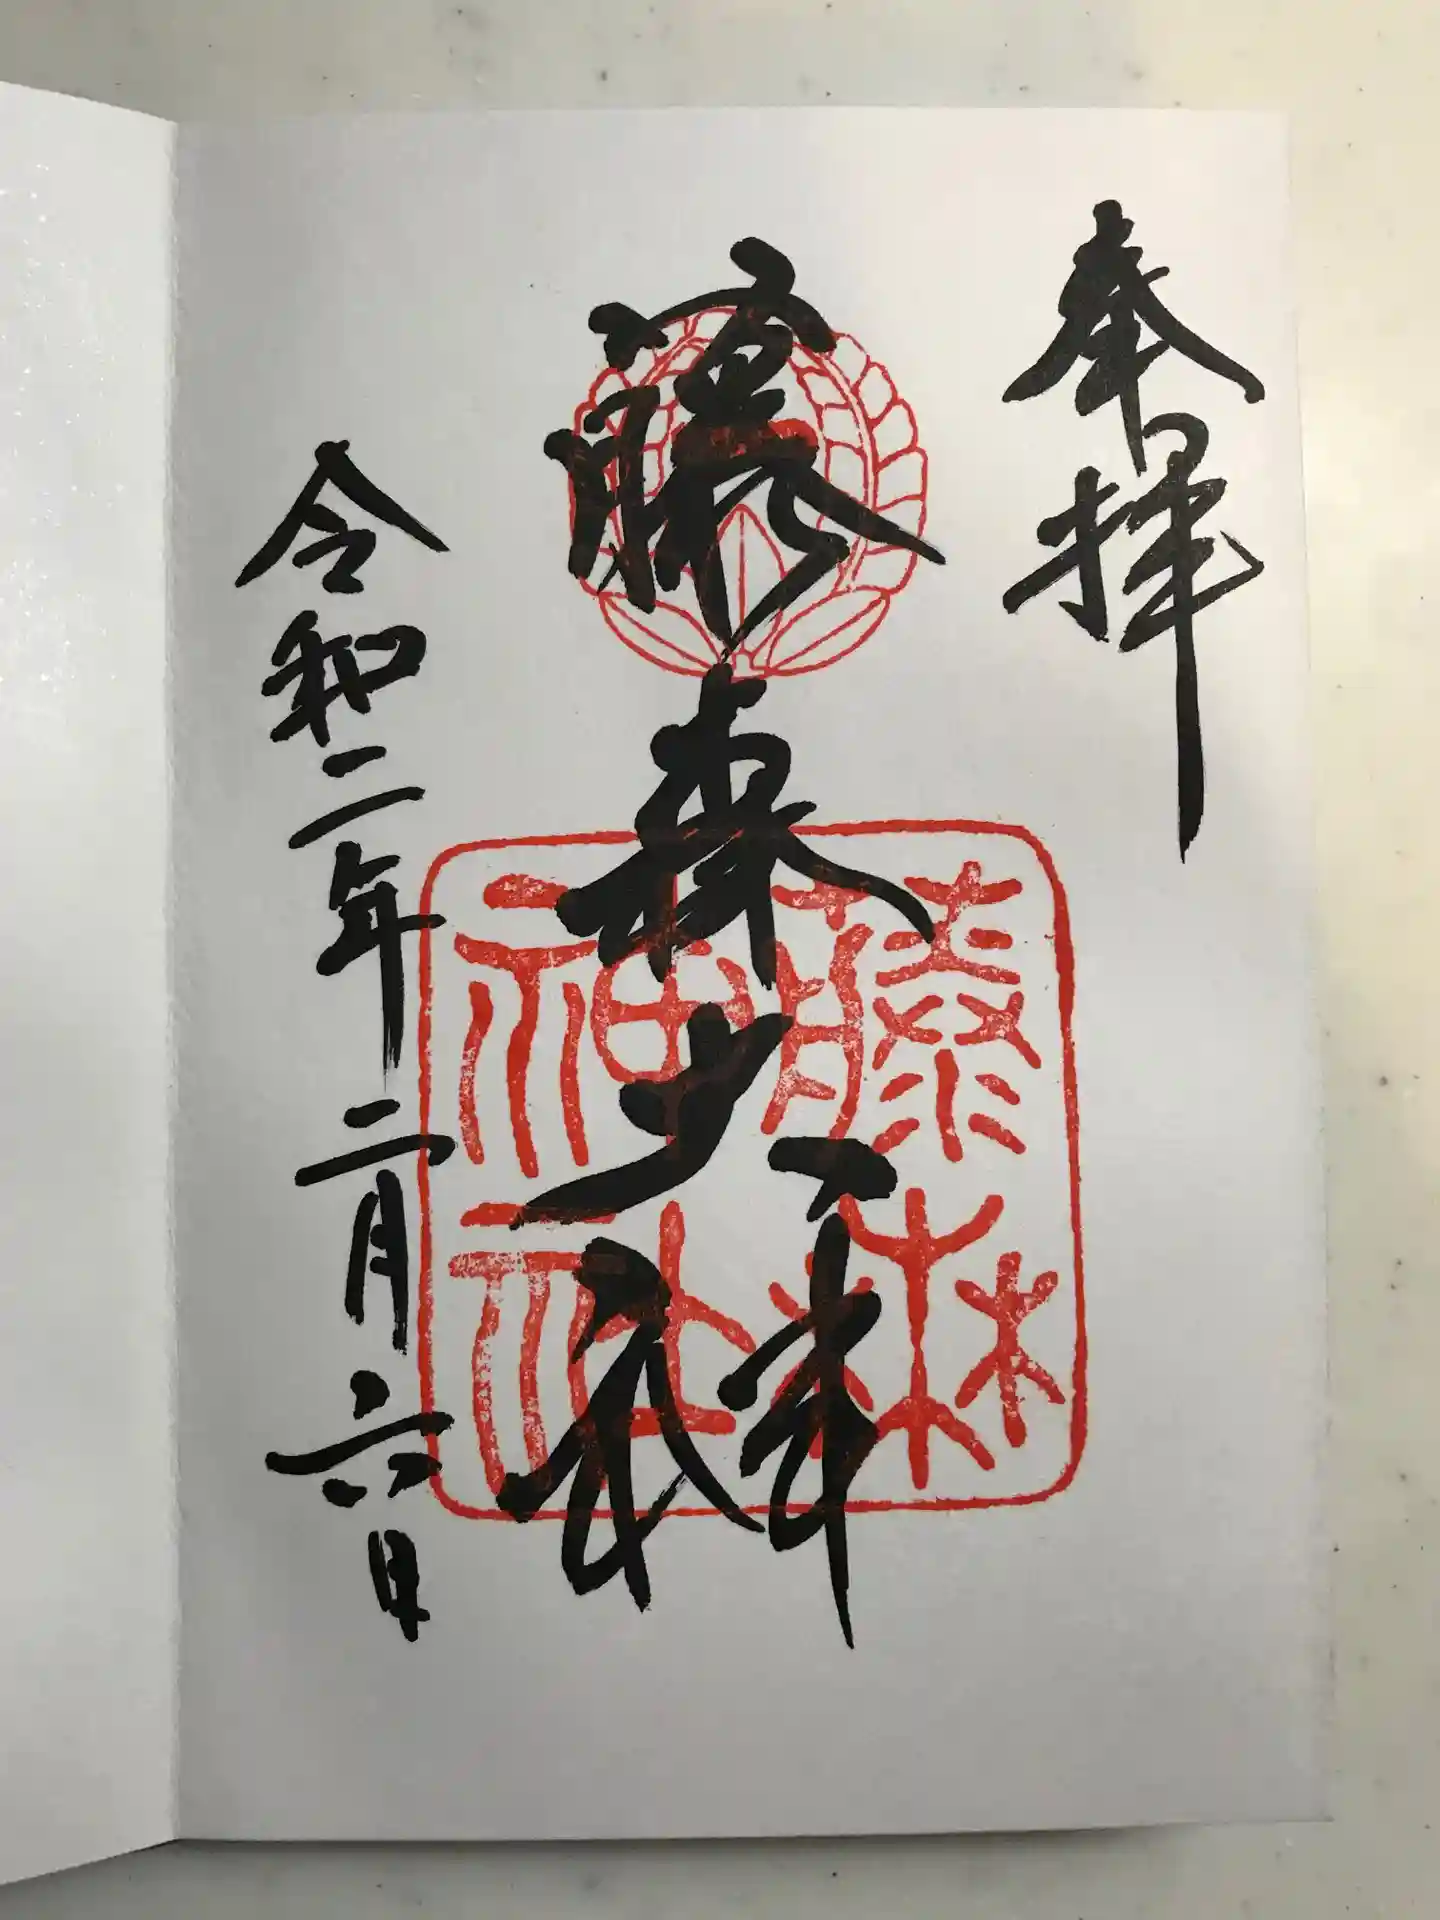 奉拝
藤森
令和二年二月六日
藤森
神社